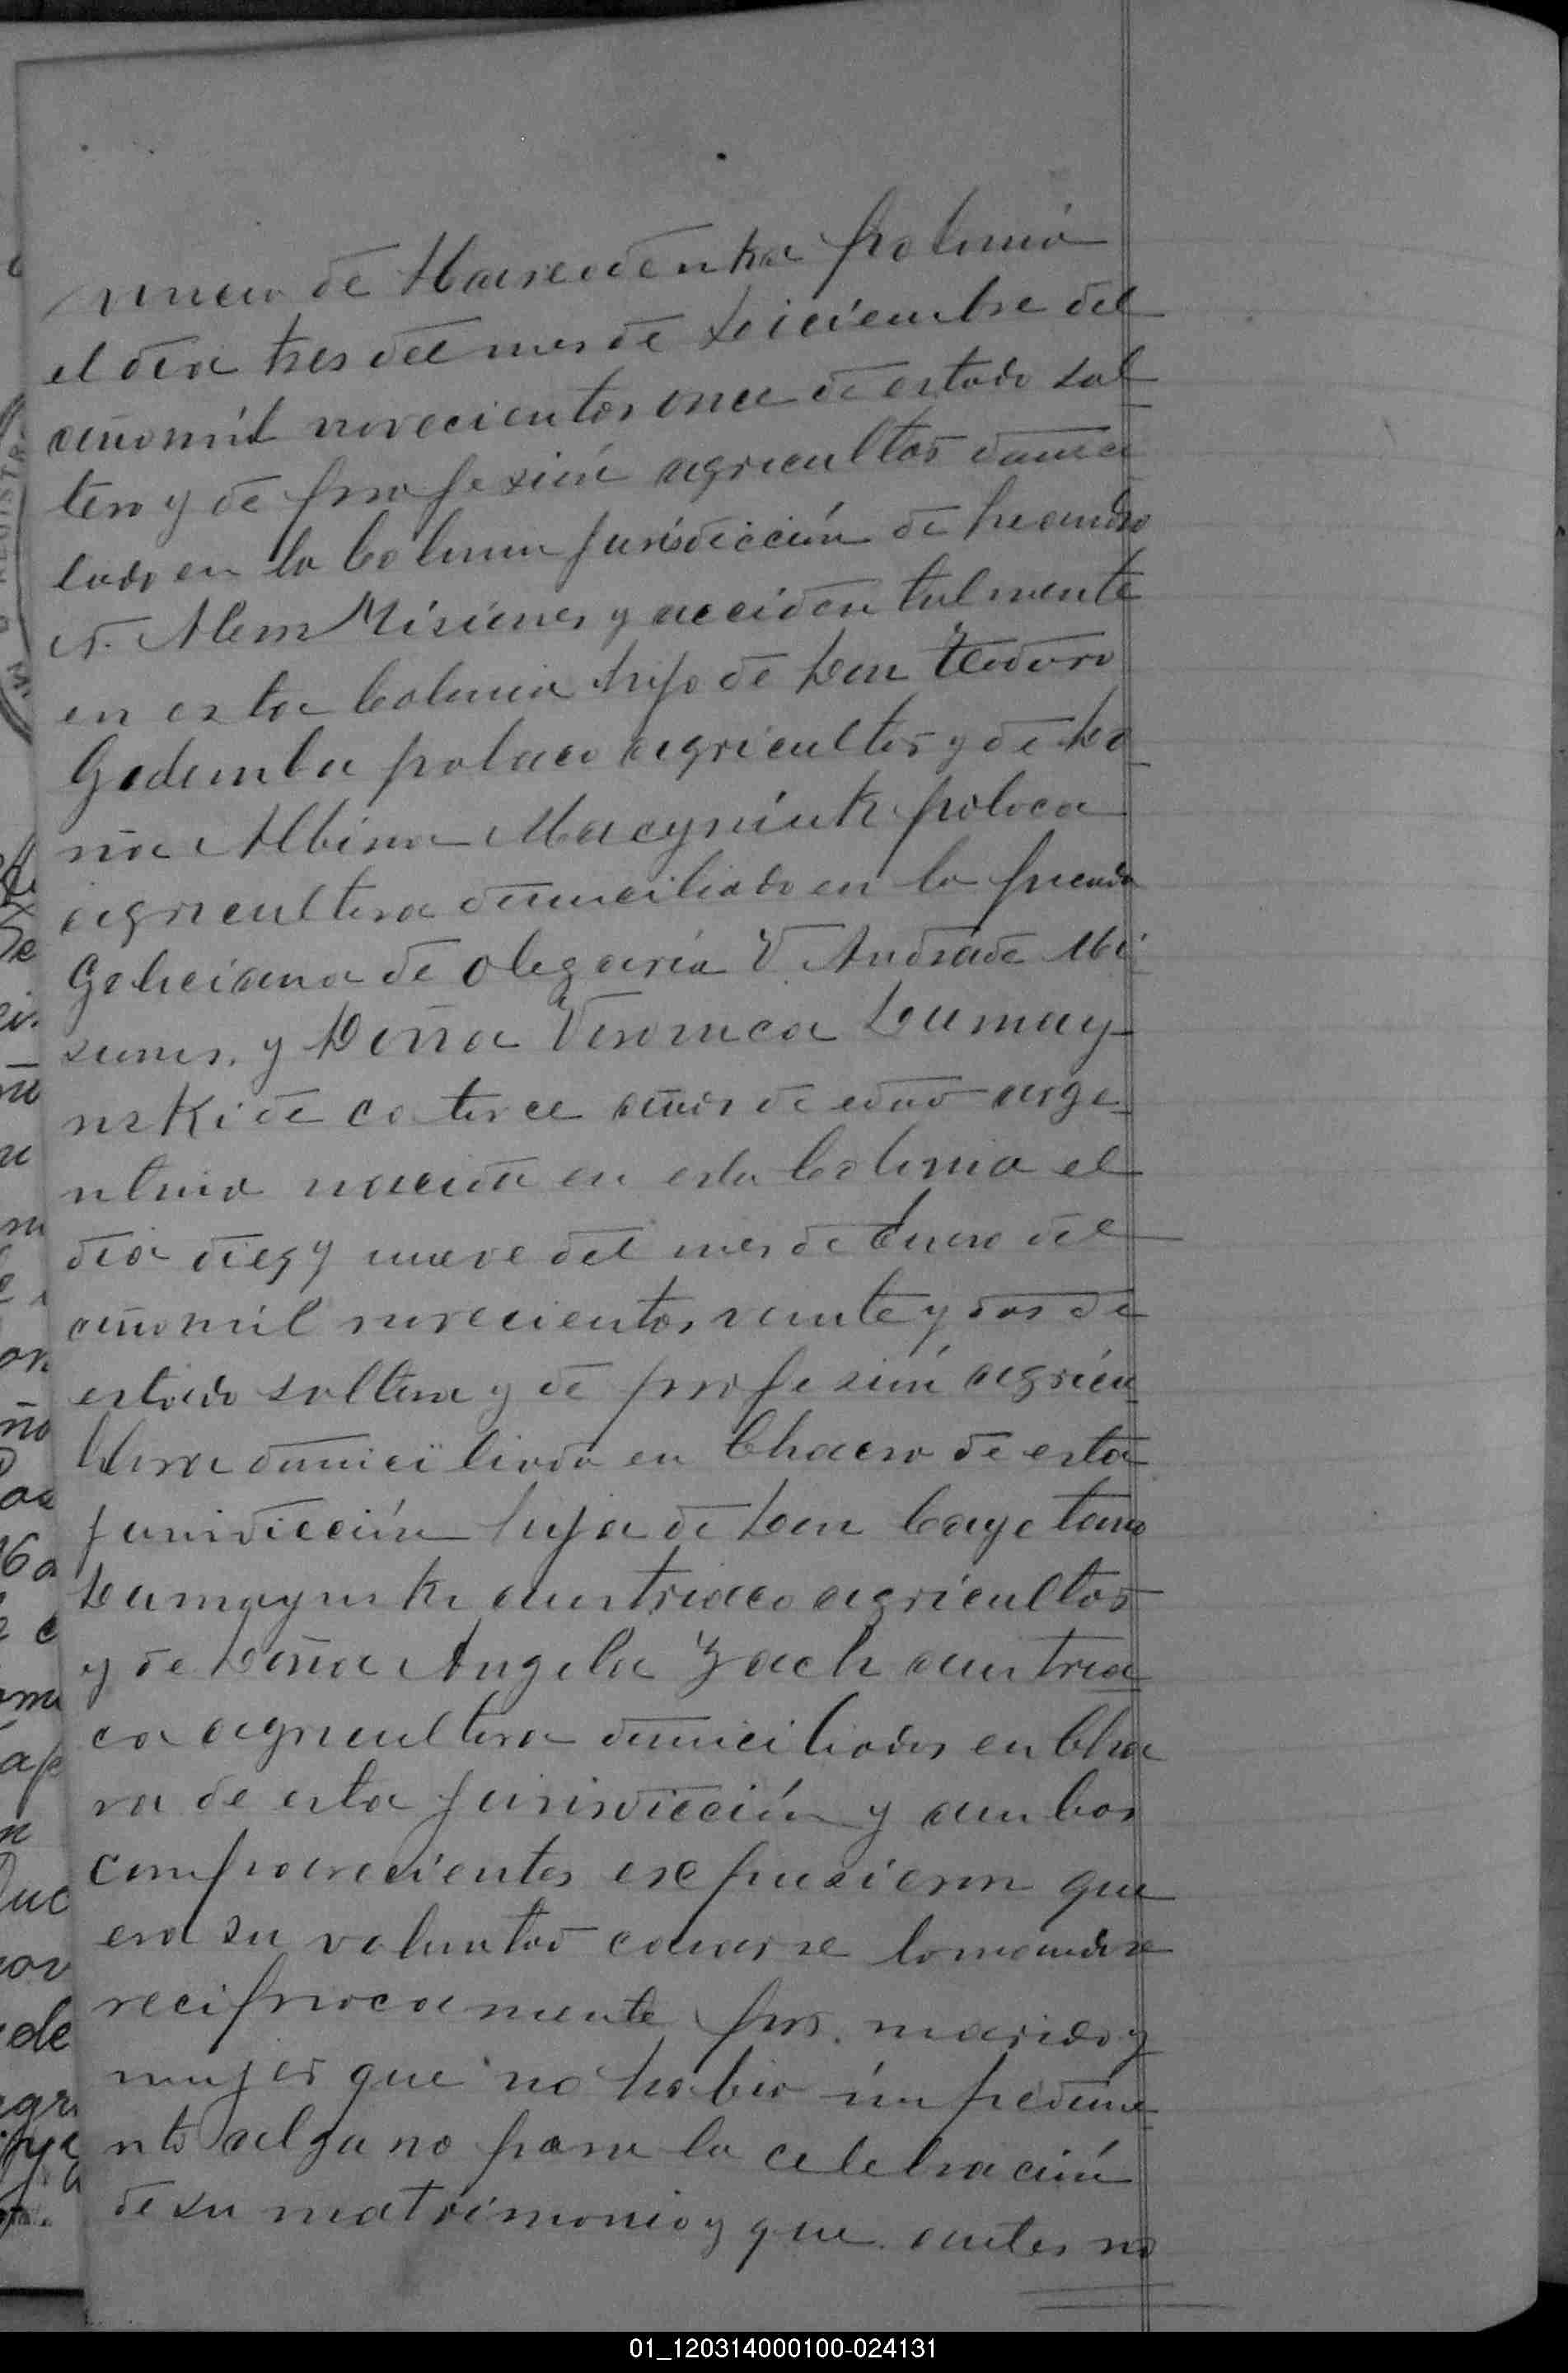 de Harododenka Polonia
el dia tres del mes de Diciembre del
año mil novecientos once de estado sol
tero y de profesión agricultor domici
liado en la Colonia jurisdicción de Leandro
N. Alem Misiones y accidentalmente
en esta Colonia hijo de Don Teodoro
Godemba polaco agricultor y de Do
ña Albina Macyniuk polaca
agricultora domiciliado en la picada
Galiciana de Olegario V. Andrade Mi
siones. y Doña Veronica Dumay
nski de catorce años de edad arge
ntina nacida en esta Colonia el
dia diez y nueve del mes de Enero del
año mil novecientos veinte y dos de
estado soltera y de profesión agricu
ltora domiciliada en Chacra de esta
jurisdicción hija de Don Cayetano
Dumaynski austriaco agricultor
y de Doña Angela Zach austria
ca agricultora domiciliados en Cha
ra de esta jurisdicción y ambos
comparecientes expusieron que
era su voluntad casarse tomandose
reciprocamente por marido y
mujer que no habia impedime
nto alguno para la celebración
de su matrimonio y que antes no
01_120314000100-024131